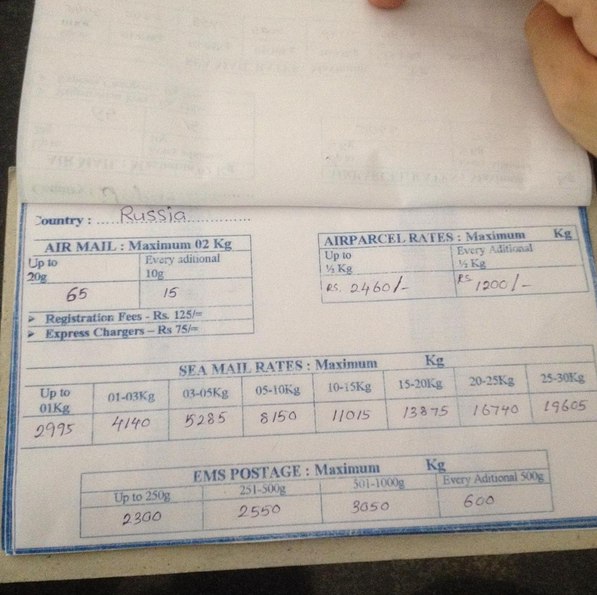 Country : ...... Russia ..................
AIR MAIL : Maximum 02 Kg
Up to 20g
Every aditional 10g
65
15
➢ Registration Fees - Rs. 125/=
➢ Express Chargers – Rs 75/=
AIRPARCEL RATES : Maximum Kg
Up to ½ Kg
Every Aditional ½ Kg
Rs. 2460/-
Rs 1200/-
SEA MAIL RATES : Maximum Kg
Up to 01Kg
01-03Kg
03-05Kg
05-10Kg
10-15Kg
15-20Kg
20-25Kg
25-30Kg
2995
4140
5285
8150
11015
13875
16740
19605
EMS POSTAGE : Maximum Kg
Up to 250g
251-500g
501-1000g
Every Aditional 500g
2300
2550
3050
600